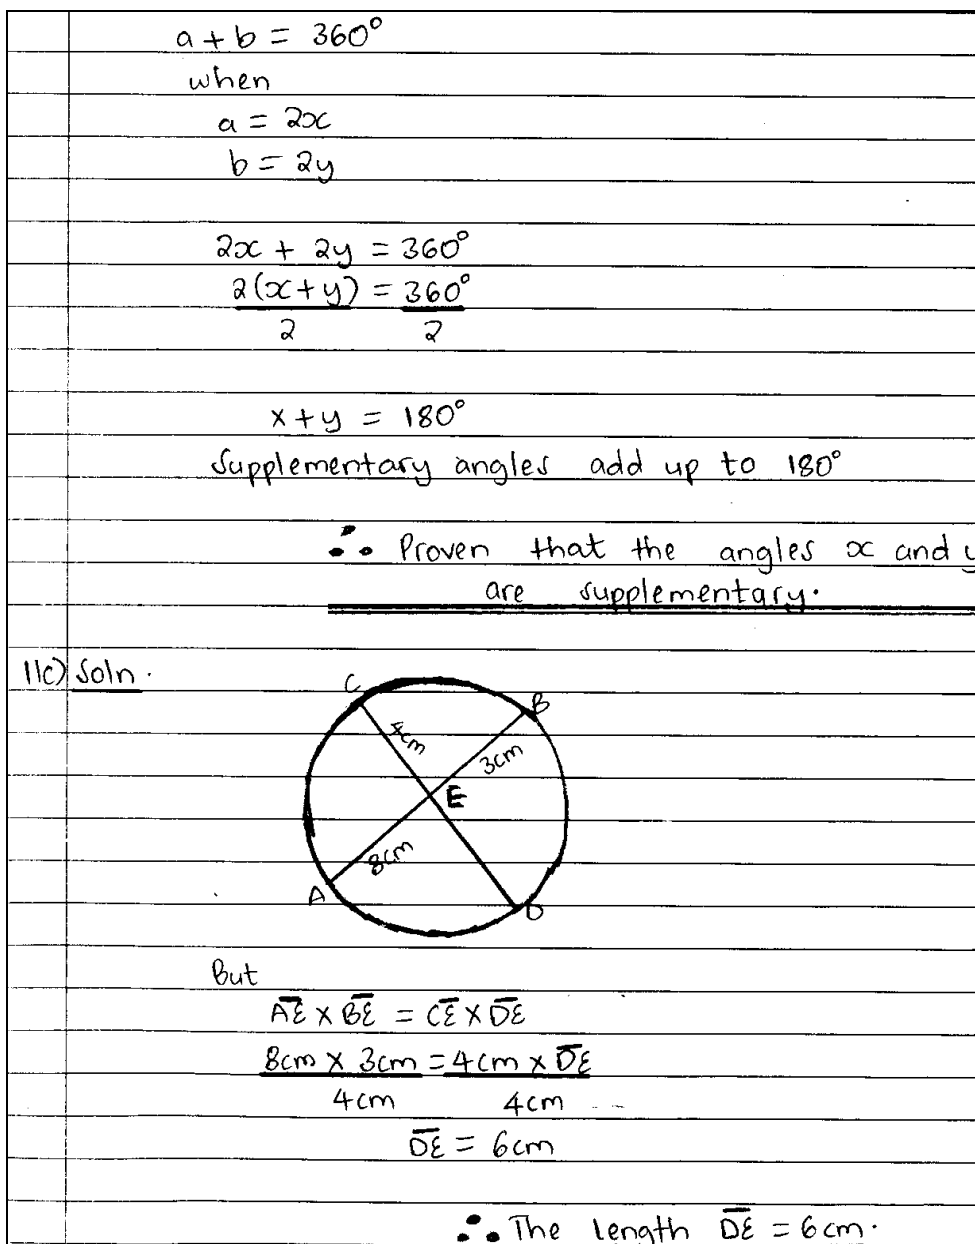 a + b = 360°
when
a = 2x
b = 2y
2x + 2y = 360°
2(x+y) = 360°
2 2
x + y = 180°
Supplementary angles add up to 180°
∴ Proven that the angles x and y
are supplementary.
11c) Soln.
C
B
4cm
3cm
E
8cm
A
D
But
A̅E̅ × B̅E̅ = C̅E̅ × D̅E̅
8cm × 3cm = 4cm × D̅E̅
4cm 4cm
D̅E̅ = 6cm
∴ The length D̅E̅ = 6cm.